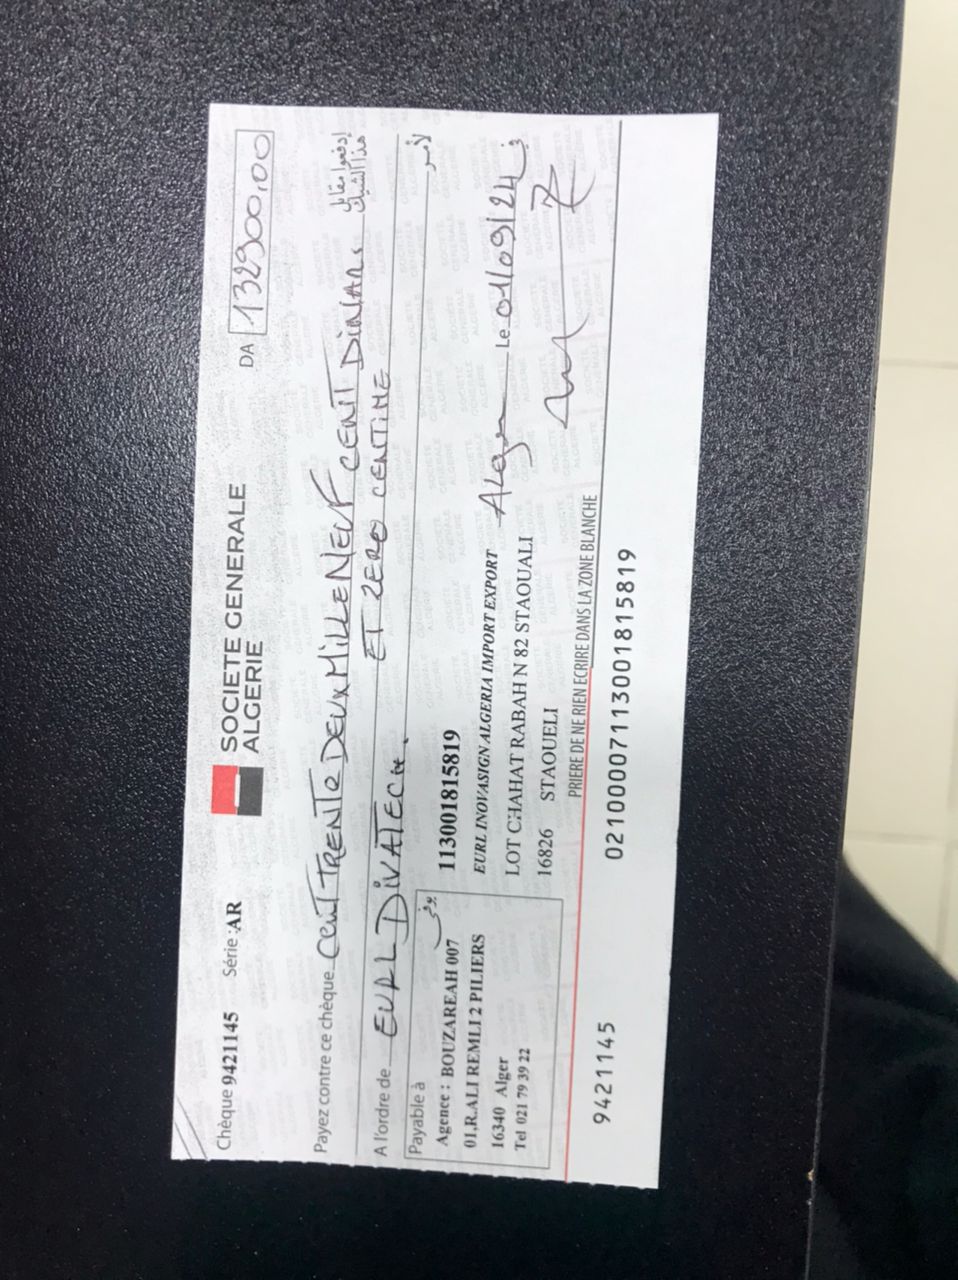 Chèque 9421145 Série :AR
SOCIETE GENERALE
ALGERIE
DA 132900,00
Payez contre ce chèque CENT TRENTE DEUX MILLE NEUF CENT DINARS إدفعوا مقابل هذا الشيك
ET ZERO CENTIME
A l'ordre de EURL DIVATECH. لأمر
Payable à
Agence : BOUZAREAH 007
01,R.ALI REMLI 2 PILIERS
16340 Alger
Tel 021 79 39 22
113001815819
EURL INOVASIGN ALGERIA IMPORT EXPORT
LOT CHAHAT RABAH N 82 STAOUALI
16826 STAOUELI
Alger Le 01/09/24 في
PRIERE DE NE RIEN ECRIRE DANS LA ZONE BLANCHE
9421145 02100007113001815819